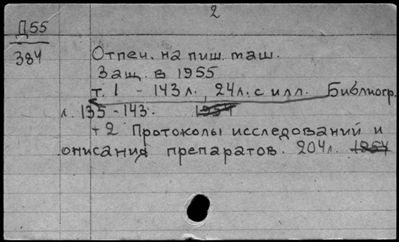 2
Д55
384
Отпеч. на пиш. маш.
Защ. в 1955
т. 1 - 143 л., 24 л. с илл. Библиогр.
л. 135-143. 1954
т 2 Протоколы исследований и
описания препаратов. 204 л. 1954